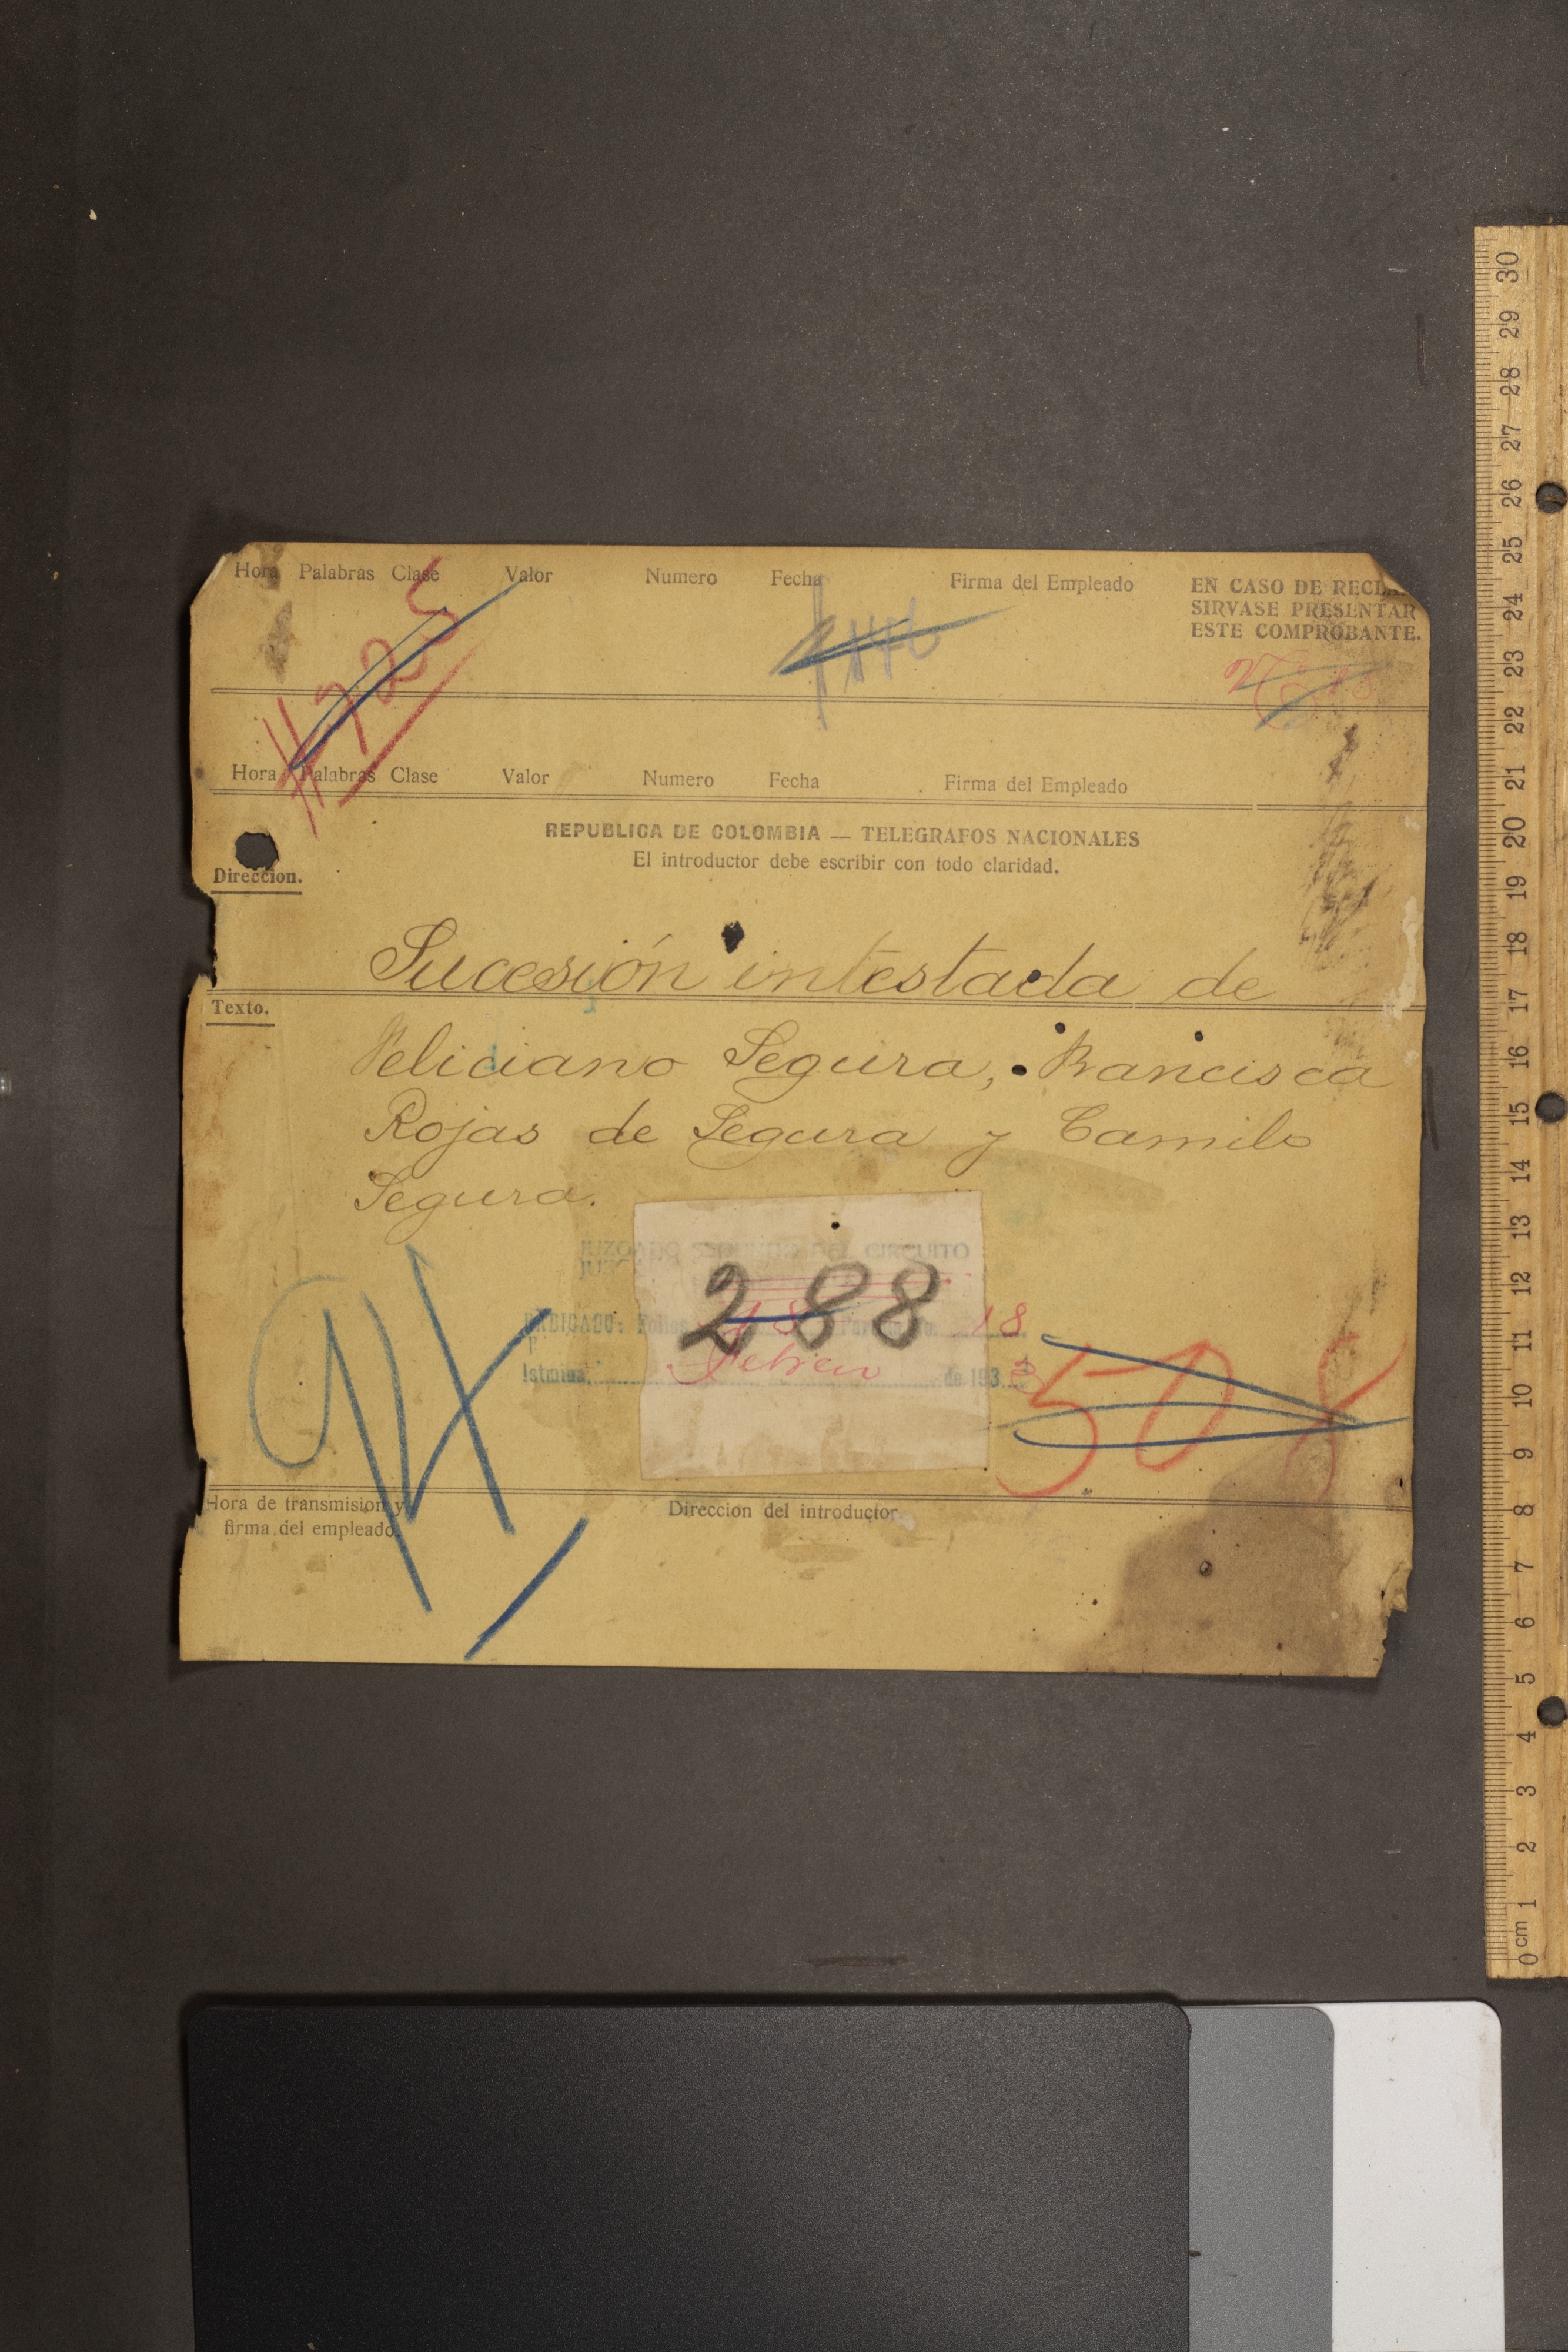 Hora Palabras Clase Valor Numero Fecha Firma del Empleado
EN CASO DE
SIRVASE PRESENTAR
ESTE COMPROBANTE.
#725
Hora Palabras Clase Valor Numero Fecha Firma del Empleado
REPUBLICA DE COLOMBIA — TELEGRAFOS NACIONALES
El introductor debe escribir con todo claridad.
Direccion.
Sucesión intestada de
Texto.
Feliciano Segura, Francisca
Rojas de Segura y Camilo
Segura.
JUZGADO SEGUNDO DEL CIRCUITO
288
RADICADO: Folios 18 18
Istmina, Febrero de 193
508
Hora de transmision y
firma del empleado.
Direccion del introductor
0 cm 1 2 3 4 5 6 7 8 9 10 11 12 13 14 15 16 17 18 19 20 21 22 23 24 25 26 27 28 29 30